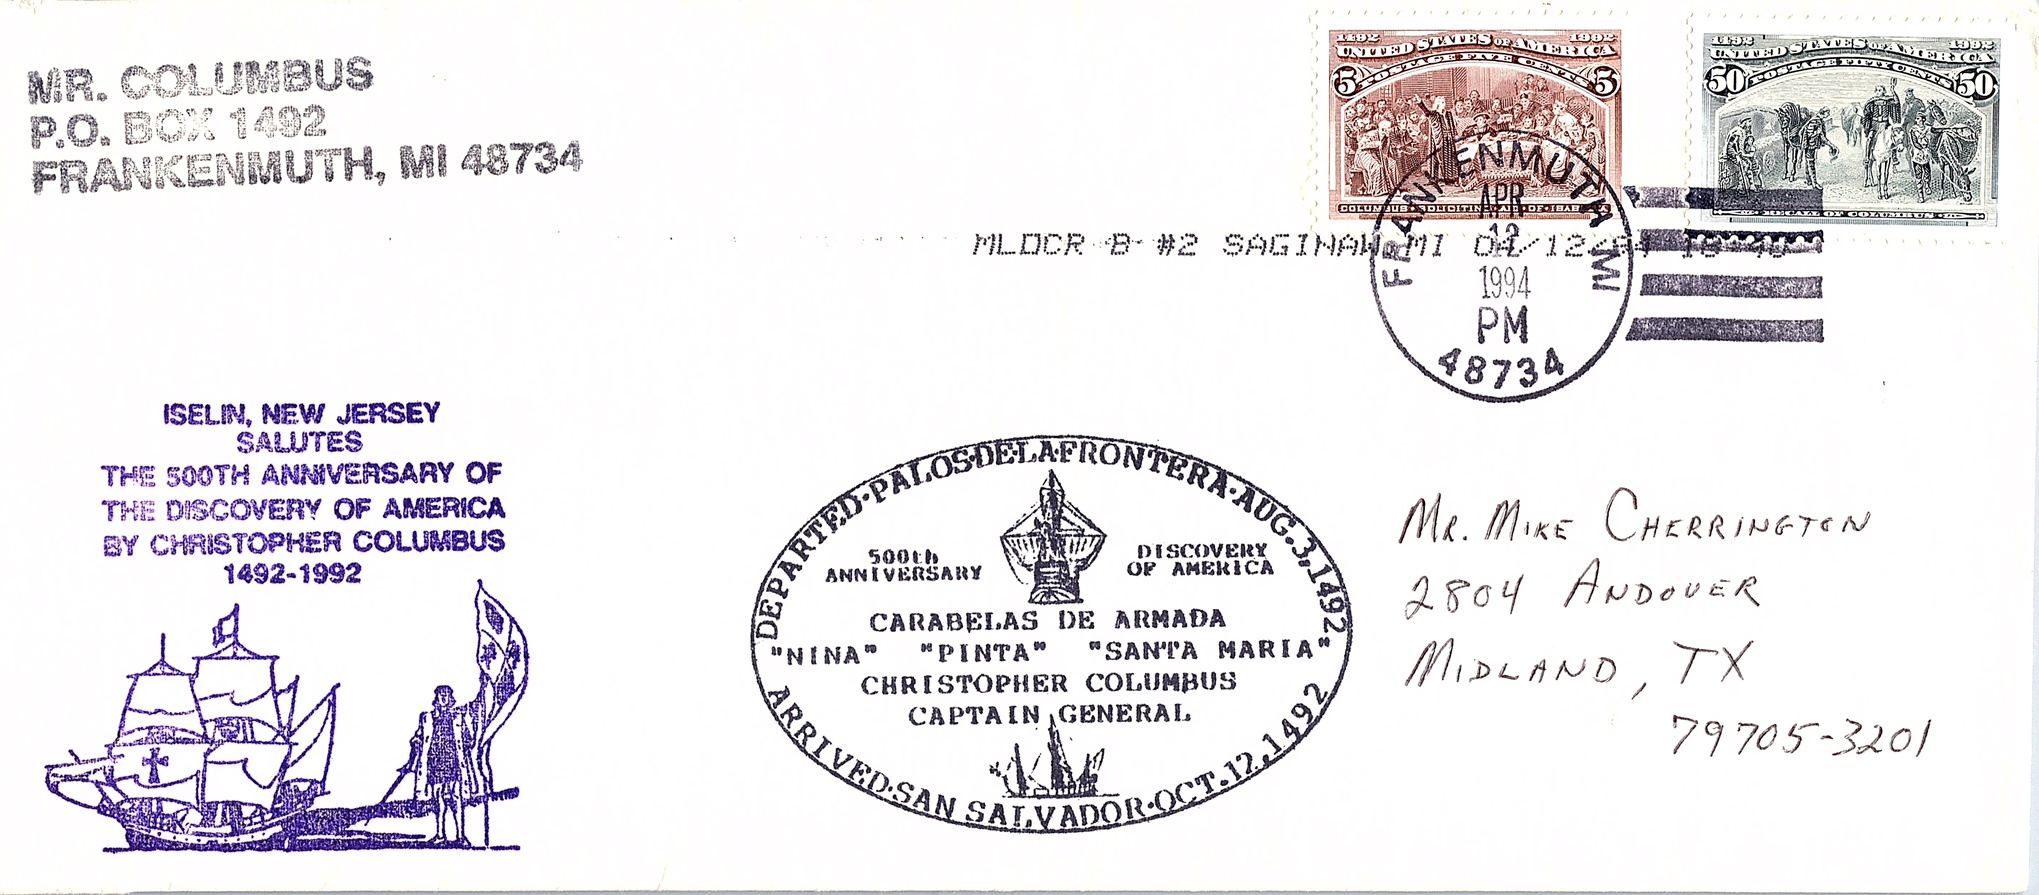 MR. COLUMBUS
P.O. BOX 1492
FRANKENMUTH, MI 48734
1492 1992
UNITED STATES OF AMERICA
5 POSTAGE FIVE CENTS 5
COLUMBUS SOLICITING AID OF ISABELLA
1492 1992
UNITED STATES OF AMERICA
50 POSTAGE FIFTY CENTS 50
RECALL OF COLUMBUS
FRANKENMUTH MI
APR
12
1994
PM
48734
MLOCR B #2 SAGINAW MI 04/12/94
ISELIN, NEW JERSEY
SALUTES
THE 500TH ANNIVERSARY OF
THE DISCOVERY OF AMERICA
BY CHRISTOPHER COLUMBUS
1492-1992
DEPARTED·PALOS·DE·LA·FRONTERA·AUG.3,1492
500th
ANNIVERSARY
DISCOVERY
OF AMERICA
CARABELAS DE ARMADA
"NINA" "PINTA" "SANTA MARIA"
CHRISTOPHER COLUMBUS
CAPTAIN GENERAL
ARRIVED·SAN SALVADOR·OCT.12,1492
MR. MIKE CHERRINGTON
2804 ANDOVER
MIDLAND, TX
79705-3201